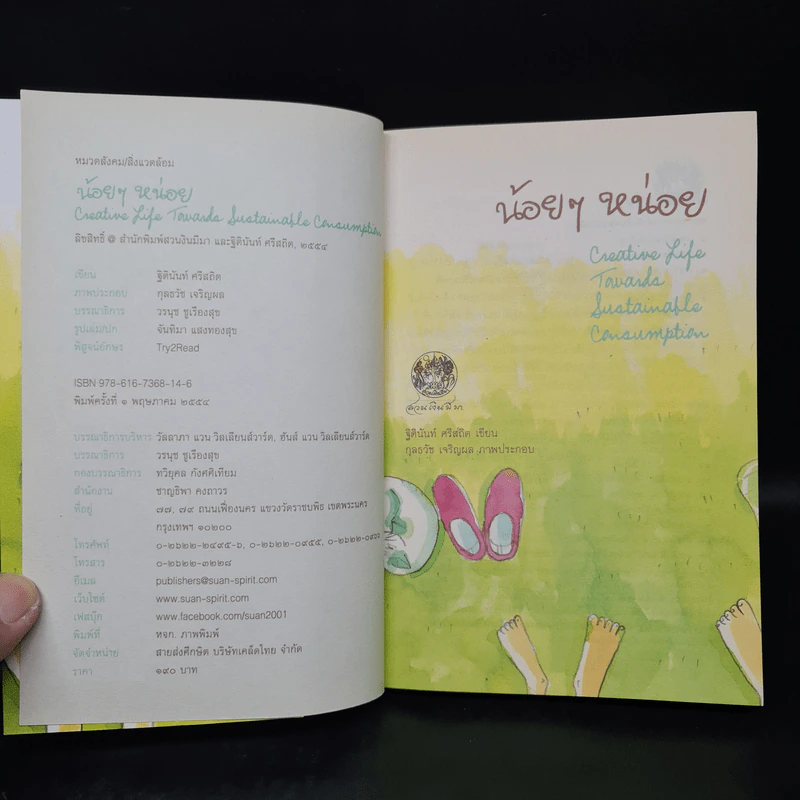 หมวดสังคม/สิ่งแวดล้อม
น้อยๆ หน่อย
Creative Life Towards Sustainable Consumption
ลิขสิทธิ์ @ สำนักพิมพ์สวนเงินมีมา และฐิตินันท์ ศรีสถิต, ๒๕๕๔
เขียน ฐิตินันท์ ศรีสถิต
ภาพประกอบ กุลธวัช เจริญผล
บรรณาธิการ วรนุช ชูเรืองสุข
รูปเล่ม/ปก จันทิมา แสงทองสุข
พิสูจน์อักษร Try2Read
ISBN 978-616-7368-14-6
พิมพ์ครั้งที่ ๑ พฤษภาคม ๒๕๕๔
บรรณาธิการบริหาร วัลลาภา แวน วิลเลียนส์วาร์ด, ฮันส์ แวน วิลเลียนส์วาร์ด
บรรณาธิการ วรนุช ชูเรืองสุข
กองบรรณาธิการ ทวิยุคล กังศศิเทียม
สำนักงาน ชาญธิพา คงถาวร
ที่อยู่ ๗๗, ๗๙ ถนนเฟื่องนคร แขวงวัดราชบพิธ เขตพระนคร
กรุงเทพฯ ๑๐๒๐๐
โทรศัพท์ ๐-๒๖๒๒-๒๔๙๕-๖, ๐-๒๖๒๒-๐๙๕๕, ๐-๒๖๒๒-
โทรสาร ๐-๒๖๒๒-๓๒๒๘
อีเมล publishers@suan-spirit.com
เว็บไซต์ www.suan-spirit.com
เฟสบุ๊ก www.facebook.com/suan2001
พิมพ์ที่ หจก. ภาพพิมพ์
จัดจำหน่าย สายส่งศึกษิต บริษัทเคล็ดไทย จำกัด
ราคา ๑๙๐ บาท
น้อยๆ หน่อย
Creative Life
Towards
Sustainable
Consumption
สวนเงินมีมา
ฐิตินันท์ ศรีสถิต เขียน
กุลธวัช เจริญผล ภาพประกอบ